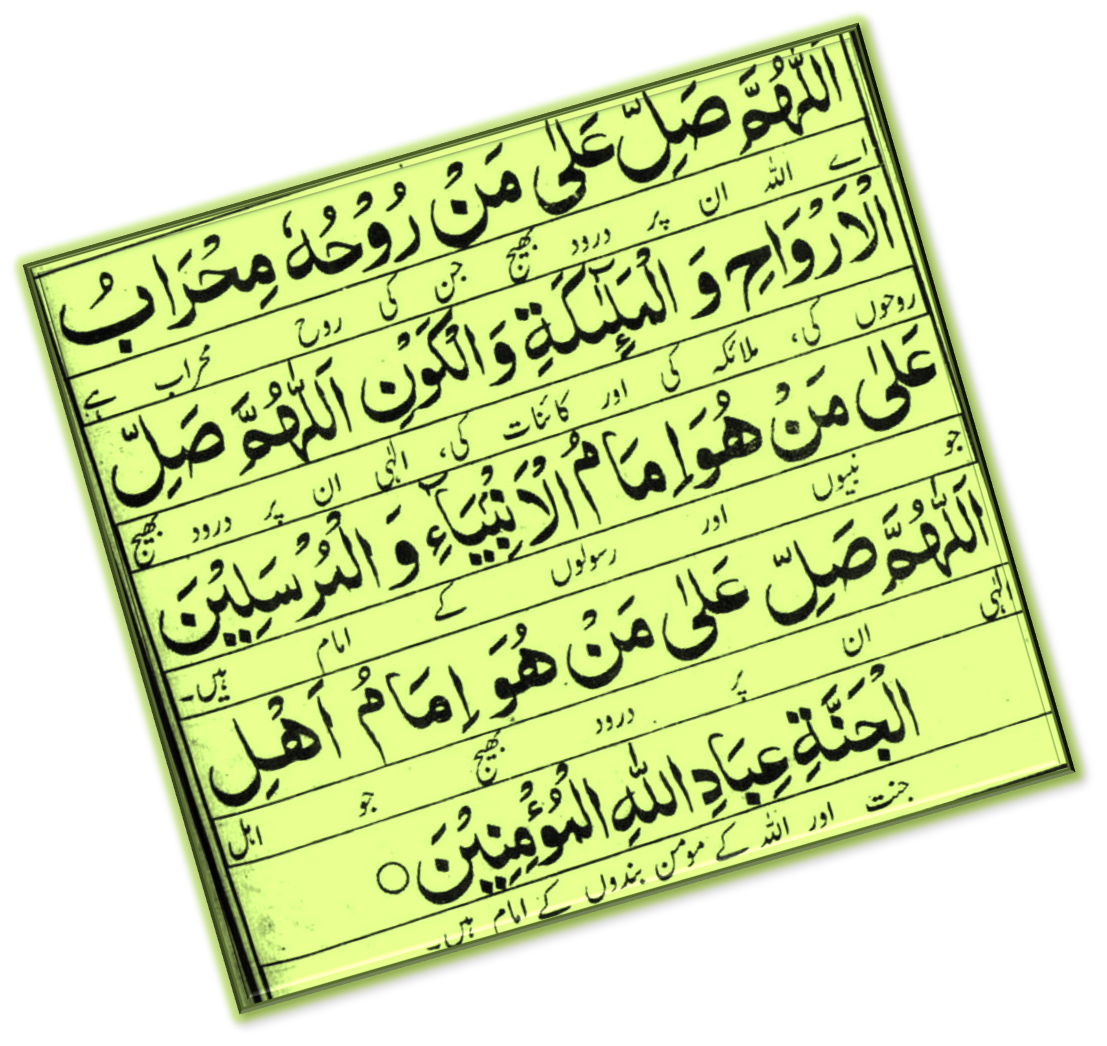 اَللّٰهُمَّ صَلِّ عَلٰى مَنْ رُوْحُهٗ مِحْرَابُ
اے اللہ ان پر درود بھیج جن کی روح محراب ہے
الْاَرْوَاحِ وَ الْمَلٰٓئِكَةِ وَالْكَوْنِ اَللّٰهُمَّ صَلِّ
روحوں کی، ملائکہ کی اور کائنات کی، الٰہی ان پر درود بھیج
عَلٰى مَنْ هُوَ اِمَامُ الْاَنْۢبِيَآءِ وَ الْمُرْسَلِيْنَ
جو نبیوں اور رسولوں کے امام ہیں۔
اَللّٰهُمَّ صَلِّ عَلٰى مَنْ هُوَ اِمَامُ اَهْلِ
الٰہی ان پر درود بھیج جو اہل
الْجَنَّةِ عِبَادِ اللّٰهِ الْمُؤْمِنِيْنَ ○
جنت اور اللہ کے مومن بندوں کے امام ہیں۔